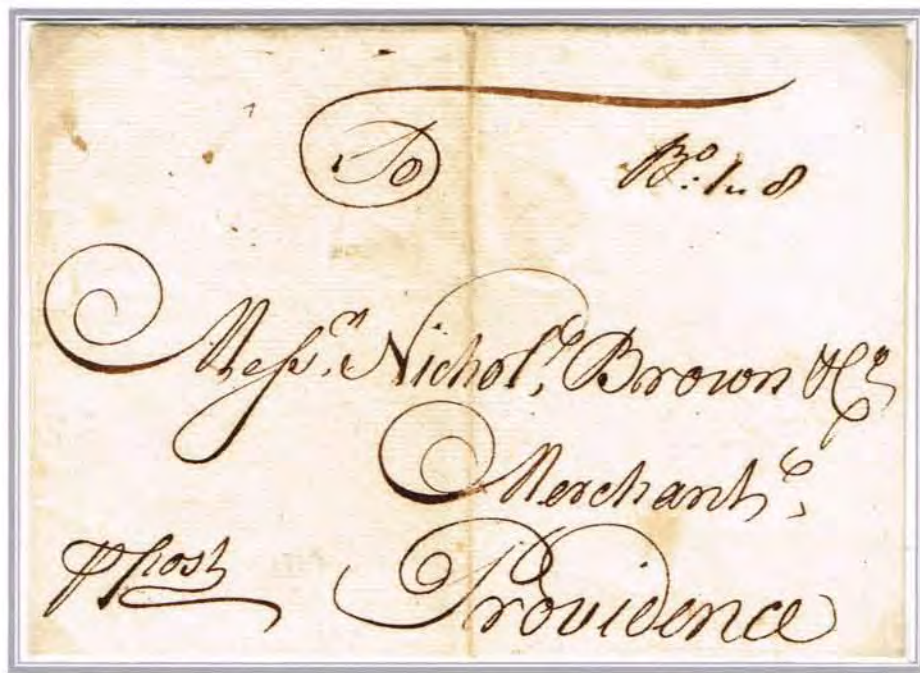 To
Bo: 1n 8
Messrs. Nichols. Brown & Co
Merchants,
Providence
p post